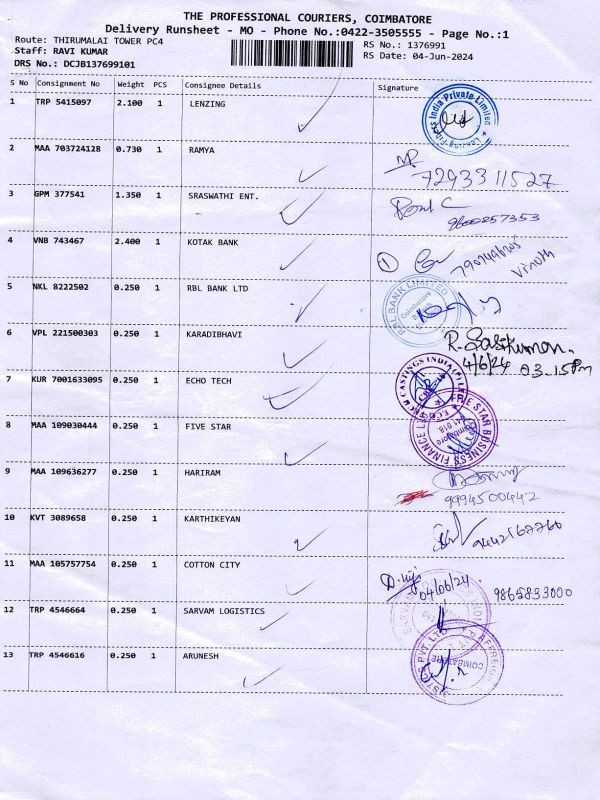 THE PROFESSIONAL COURIERS, COIMBATORE
Delivery Runsheet - MO - Phone No.:0422-3505555 - Page No.:1
Route: THIRUMALAI TOWER PC4
RS No.: 1376991
Staff: RAVI KUMAR
RS Date: 04-Jun-2024
DRS No.: DCJB137699101
S No Consignment No Weight PCS Consignee Details Signature
1 TRP 5415097 2.100 1 LENZING
Fibers India Private Limited
2 MAA 703724128 0.730 1 RAMYA
7293311527
3 GPM 377541 1.350 1 SRASWATHI ENT.
9800857353
4 VNB 743467 2.400 1 KOTAK BANK
1
Vinoth
5 NKL 8222502 0.250 1 RBL BANK LTD
BANK LIMITED
Coimbatore
6 VPL 221500303 0.250 1 KARADIBHAVI
R. Sasikumar.
4/6/24 03.15Pm
7 KUR 7001633095 0.250 1 ECHO TECH
CASTINGS INDIA
8 MAA 109030444 0.250 1 FIVE STAR
FIVE STAR BUSINESS FINANCE
Coimbatore
9 MAA 109636277 0.250 1 HARIRAM
9994500442
10 KVT 3089658 0.250 1 KARTHIKEYAN
11 MAA 105757754 0.250 1 COTTON CITY
04/06/24. 9865833000
12 TRP 4546664 0.250 1 SARVAM LOGISTICS
13 TRP 4546616 0.250 1 ARUNESH
PVT LTD
COIMBATORE